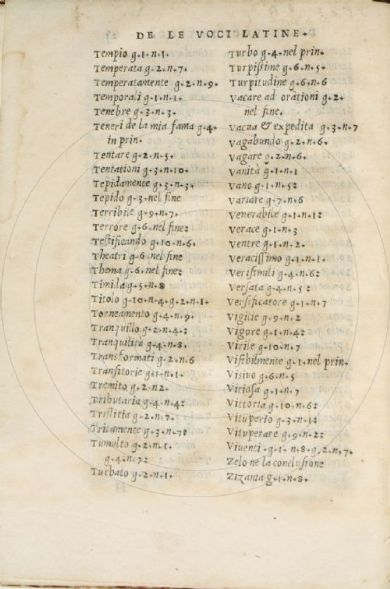 DE LE VOCI LATINE.
Tempio g.1.n.1.
Temperata g.2.n.7.
Temperatamente g.2.n.9.
Temporali g.1.n.1.
Tenebre g.3.n.3.
Teneri de la mia fama g.4.
in prin.
Tentare g.2.n.5.
Tentationi g.3.n.10.
Tepidamente g.3.n.3.
Tepido g.3.nel fine
Terribile g.9.n.7.
Terrore g.6.nel fine:
Testificando g.10.n.6.
Theatri g.6.nel fine
Thema g.6.nel fine:
Timila g.5.n.8
Titolo g.10.n.4.g.2.n.1.
Torneamento g.4.n.9.
Tranquillo g.2.n.4.:
Tranquilità g.4.n.8.
Transformati g.2.n.6
Transitorie g.1.n.1.
Tremito g.2.n2.
Tributaria g.4.n.4:
Tristitia g.2.n.7.
Tritamente g.3.n.7:
Tumulto g.2.n.1.
g.4.n.7:
Turbato g.2.n.1.
Turbo g.4.nel prin.
Turpissime g.6.n.5.
Turpitudine g.6.n.6
Vacare ad orationi g.2.
nel fine.
Vacua & expedita g.3.n.7
Vagabundo g.2.n.6.
Vagare g.2.n.6.
Vanità g.1.n.1
Vano g.1.n.5:
Variare g.7.n.6
Venerabile g.1.n.1:
Verace g.1.n.3
Ventre g.1.n.2.
Veracissimo g.1.n.1.
Verisimili g.4.n.6:
Versata g.4.n.5:
Versificatore g.1.n.7
Vigilie g.9.n.2
Vigore g.1.n.4:
Virile g.10.n.7
Visibilmente g.1.nel prin.
Visivo g.6.n.5
Vitiosa g.1.n.7
Vittoria g.10.n.6:
Vituperio g.3.n.1:
Vituperare g.9.n.2:
Viventi g.1.n.8.g.2.n.7.
Zelo ne la conclusione
Zizania g.1.n.8.